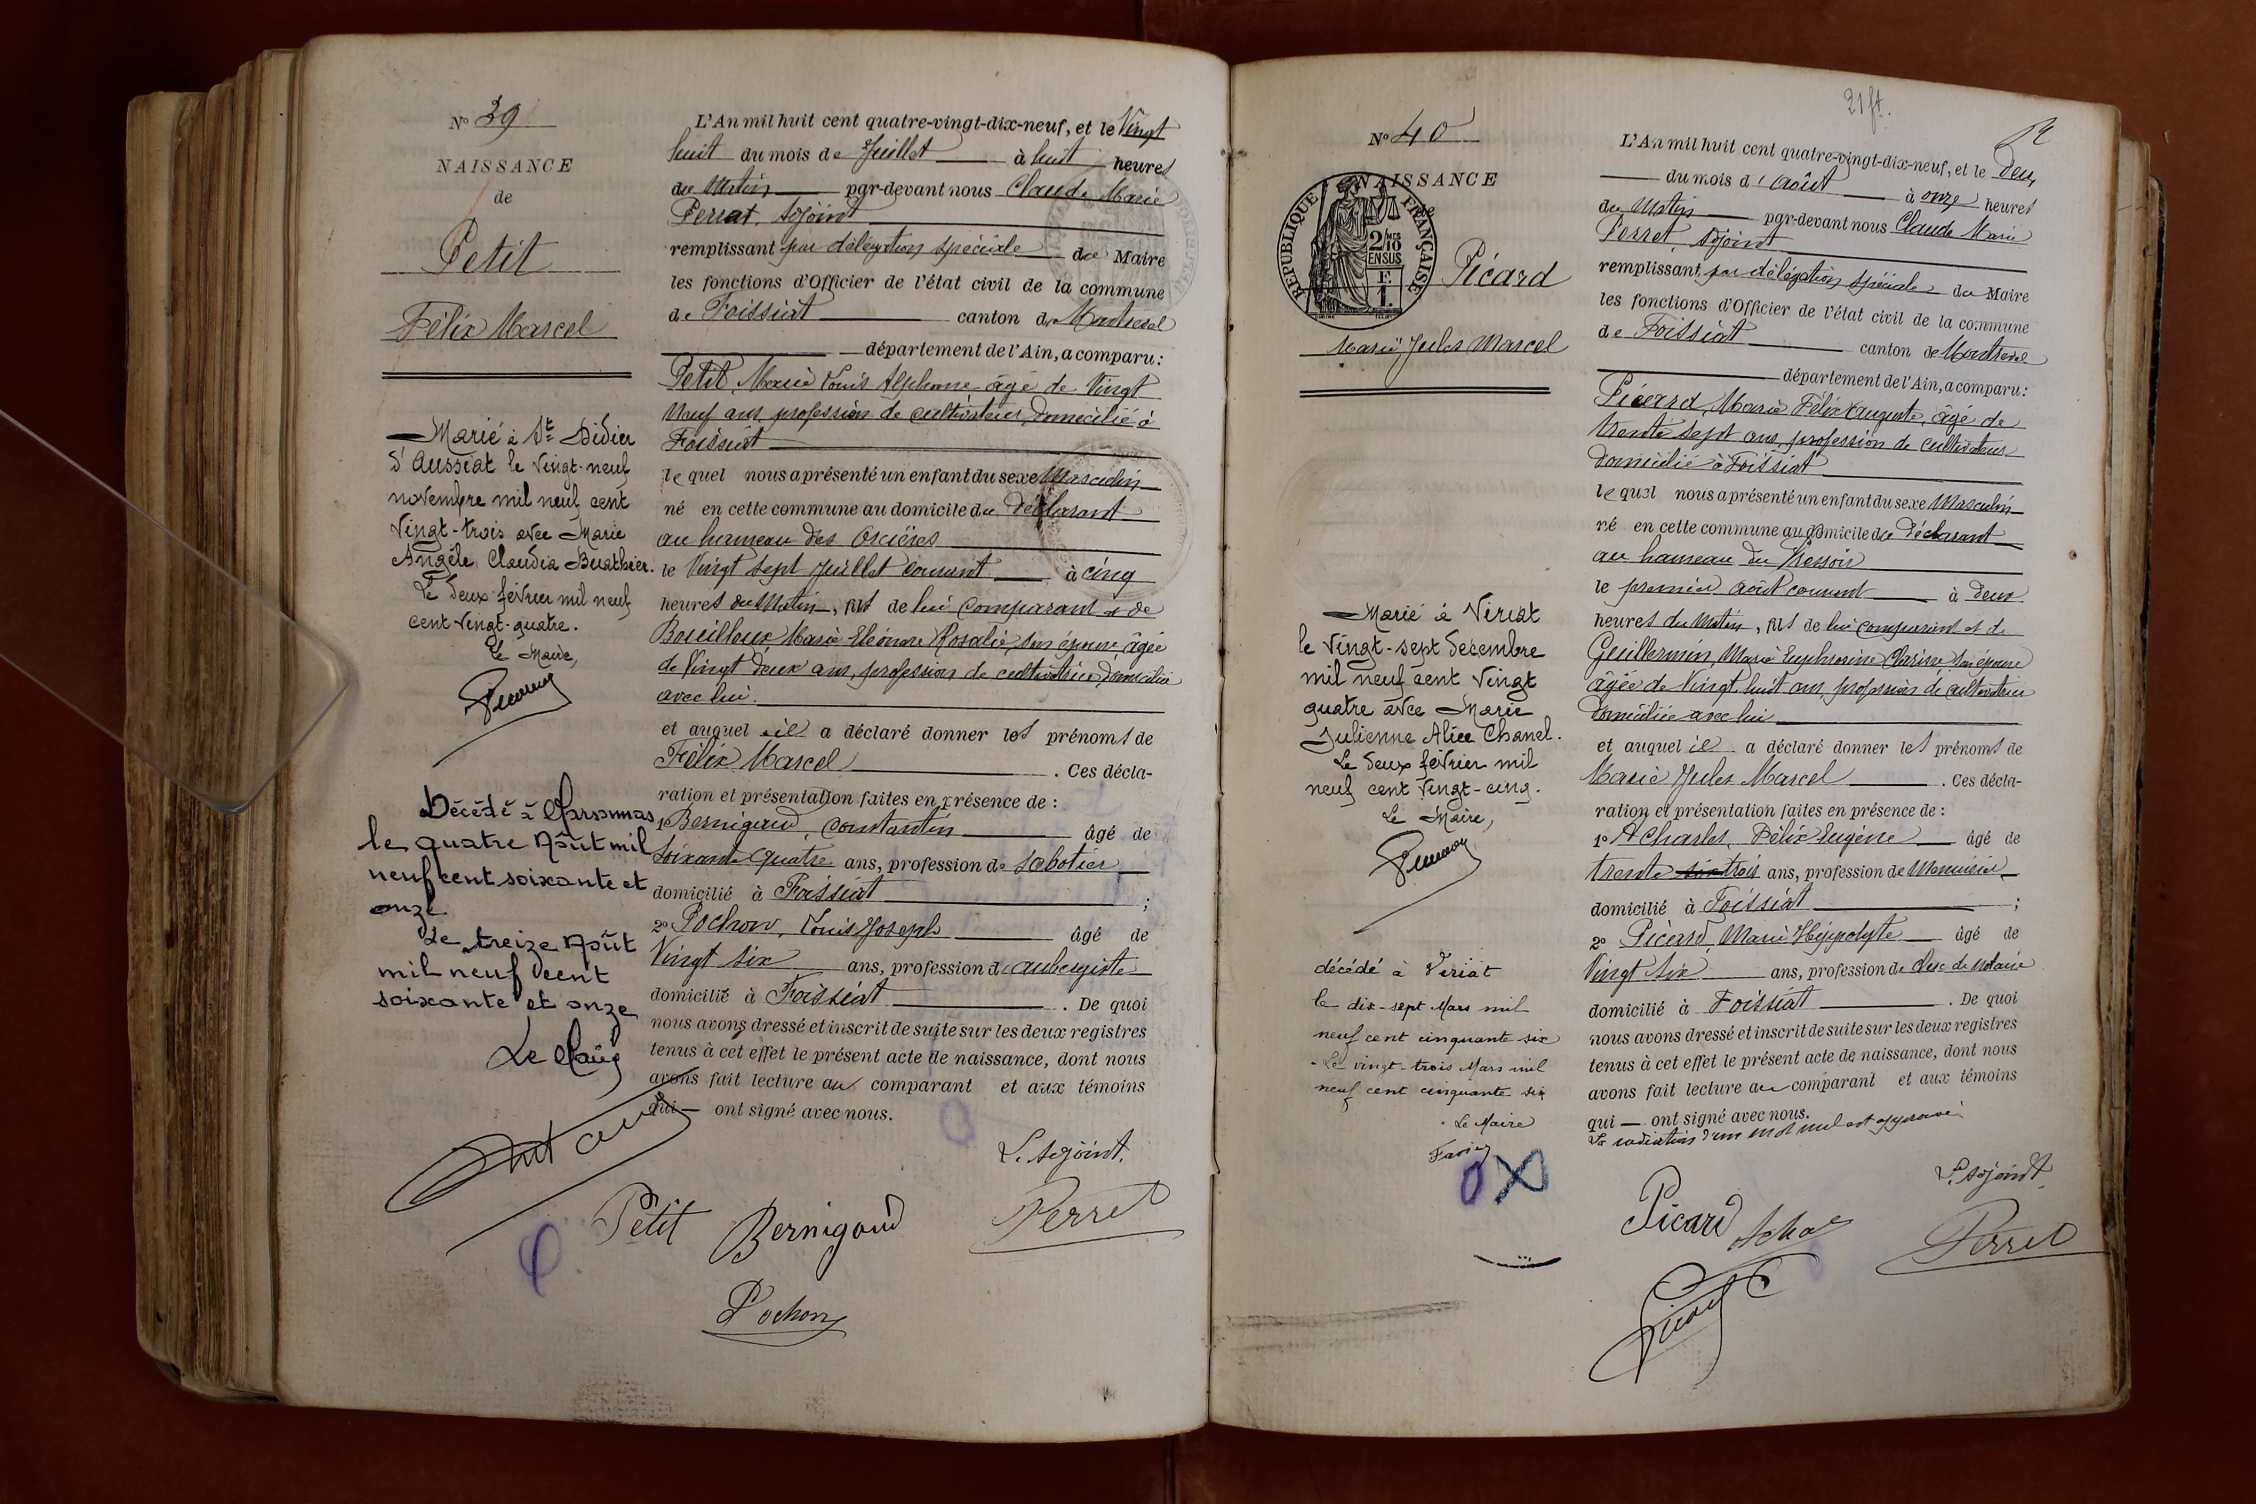 No 39
NAISSANCE
de
Petit
Félix Marcel
Marié à St Didier
d'Aussiat le vingt-neuf
novembre mil neuf cent
vingt-trois avec Marie
Angèle Claudia Buathier.
Le deux février mil neuf
cent vingt-quatre.
Le Maire,
Décédé à Marsonnas
le quatre Août mil
neuf cent soixante et
onze
Le treize Août
mil neuf cent
soixante et onze
Le Maire
L'An mil huit cent quatre-vingt-dix-neuf, et le Vingt
huit du mois de Juillet à huit heures
du Matin par-devant nous Claude Marie
Perret, Adjoint
remplissant par délégation spéciale du Maire
les fonctions d'Officier de l'état civil de la commune
de Foissiat canton de Montrevel
département de l'Ain, a comparu :
Petit, Marie Louis Alphonse âgé de Vingt
Neuf ans, profession de cultivateur, domicilié à
Foissiat
lequel nous a présenté un enfant du sexe Masculin
né en cette commune au domicile du Déclarant
au hameau des Orcières
le Vingt sept Juillet courant à cinq
heures du Matin, fils de lui comparant et de
Bouilloux Marie Eléonore Rosalie, son épouse âgée
de Vingt deux ans, profession de cultivatrice, domiciliée
avec lui.
et auquel il a déclaré donner les prénoms de
Félix Marcel . Ces décla-
ration et présentation faites en présence de :
1o Bernigaud, Constantin âgé de
soixante quatre ans, profession de sabotier
domicilié à Foissiat ;
2o Pochon, Louis Joseph âgé de
Vingt six ans, profession d'aubergiste
domicilié à Foissiat . De quoi
nous avons dressé et inscrit de suite sur les deux registres
tenus à cet effet le présent acte de naissance, dont nous
avons fait lecture au comparant et aux témoins
qui — ont signé avec nous.
L'Adjoint.
Petit Bernigaud Perret
Pochon
21 ft.
No 40
NAISSANCE
de
RÉPUBLIQUE FRANÇAISE
2/10 MES
EN SUS
F.
1.
Picard
Marie Jules Marcel
Marié à Viriat
le vingt-sept décembre
mil neuf cent vingt
quatre avec Marie
Julienne Alice Chanel.
Le deux février mil
neuf cent vingt-cinq.
Le Maire,
décédé à Viriat
le dix-sept Mars mil
neuf cent cinquante six
- Le vingt-trois Mars mil
neuf cent cinquante six
Le Maire
L'An mil huit cent quatre-vingt-dix-neuf, et le Deux
du mois d'août à onze heures
du Matin par-devant nous Claude Marie
Perret, Adjoint
remplissant par délégation spéciale du Maire
les fonctions d'Officier de l'état civil de la commune
de Foissiat canton de Montrevel
département de l'Ain, a comparu :
Picard, Marie Félix Auguste, âgé de
trente sept ans, profession de cultivateur
domicilié à Foissiat
lequel nous a présenté un enfant du sexe Masculin
né en cette commune au domicile du Déclarant
au hameau du Tressoir
le premier août courant à deux
heures du Matin, fils de lui comparant et de
Guillermin, Marie Euphrosine Clarisse son épouse
âgée de Vingt huit ans, profession de cultivateur
domiciliée avec lui
et auquel il a déclaré donner les prénoms de
Marie Jules Marcel . Ces décla-
ration et présentation faites en présence de :
1o Acharles, Félix Eugène âgé de
trente six trois ans, profession de Menuisier
domicilié à Foissiat ;
2o Picard, Marie Hippolyte âgé de
Vingt six ans, profession de clerc de notaire
domicilié à Foissiat . De quoi
nous avons dressé et inscrit de suite sur les deux registres
tenus à cet effet le présent acte de naissance, dont nous
avons fait lecture au comparant et aux témoins
qui — ont signé avec nous.
La radiation d'un mot nul est approuvé
L'Adjoint.
Picard Perret
Picard